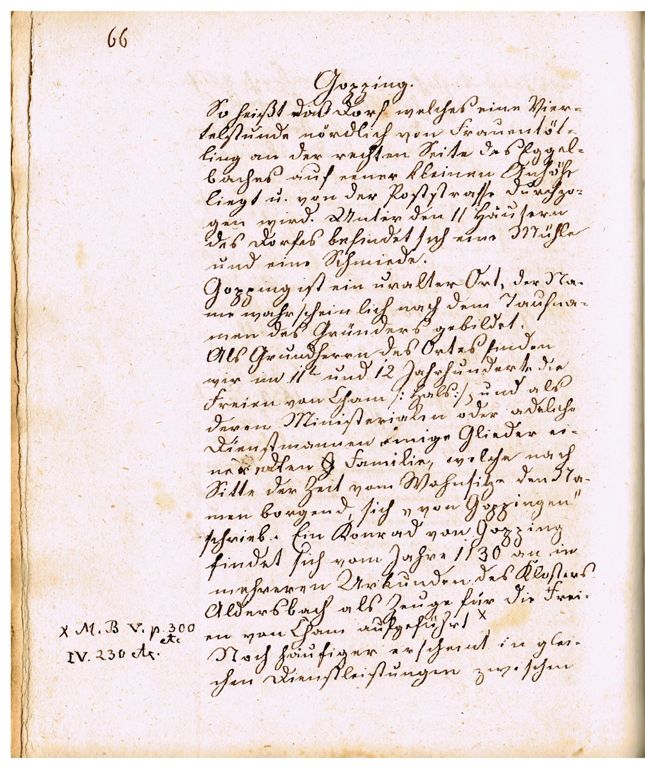 66
Gopping.
So heißt das Dorf welches eine Vier-
telstunde nördlich von Frauentöt-
ling an der rechten Seite des Eggel-
baches auf einer kleinen Anhöhe
liegt u. von der Poststrasse durchzo-
gen wird. Unter den 11 Häusern
des Dorfes befindet sich eine Mühle
und eine Schmiede.
Gopping ist ein uralter Ort, der Na-
me wahrscheinlich nach dem Taufna-
men des Gründers gebildet.
Als Grundherrn des Ortes finden
wir im 11t und 12 Jahrhunderte die
Freien von Cham /: Hals :/, und als
deren Ministerialen oder adeliche
Dienstmannen einige Glieder ei-
ner alten Familie, welche nach
Sitte der Zeit vom Wohnsitze den Na-
men borgend, sich „von Goppingen"
schrieb. Ein Konrad von Gopping
findet sich vom Jahre 1130 an in
mehreren Urkunden des Klosters
Aldersbach als Zeuge für die Frei-
en von Cham aufgeführt x
x M. B V. p. 300
etc
IV. 230 etc.
Noch häufiger erscheint in glei-
chen Dienstleistungen zwischen